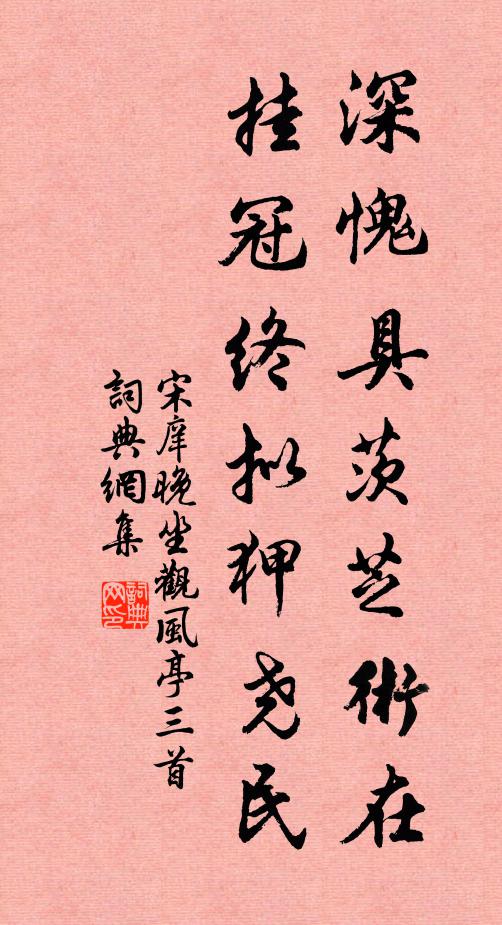 深愧具茨芝術在
挂冠終拟狎尧民
宋庠晚坐觀風亭三首
詞典網集
詞典网印